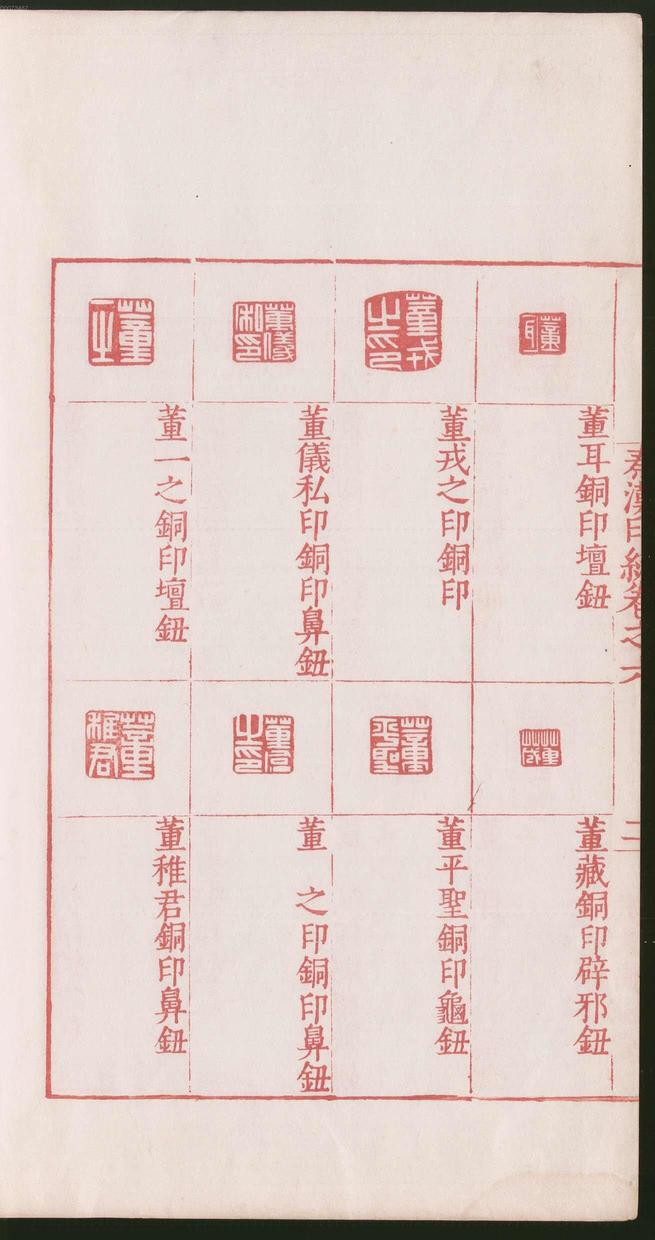 秦漢印統卷之六
二
董耳銅印壇鈕
董戎之印銅印
董儀私印銅印鼻鈕
董一之銅印壇鈕
董藏銅印辟邪鈕
董平聖銅印龜鈕
董 之印銅印鼻鈕
董稚君銅印鼻鈕